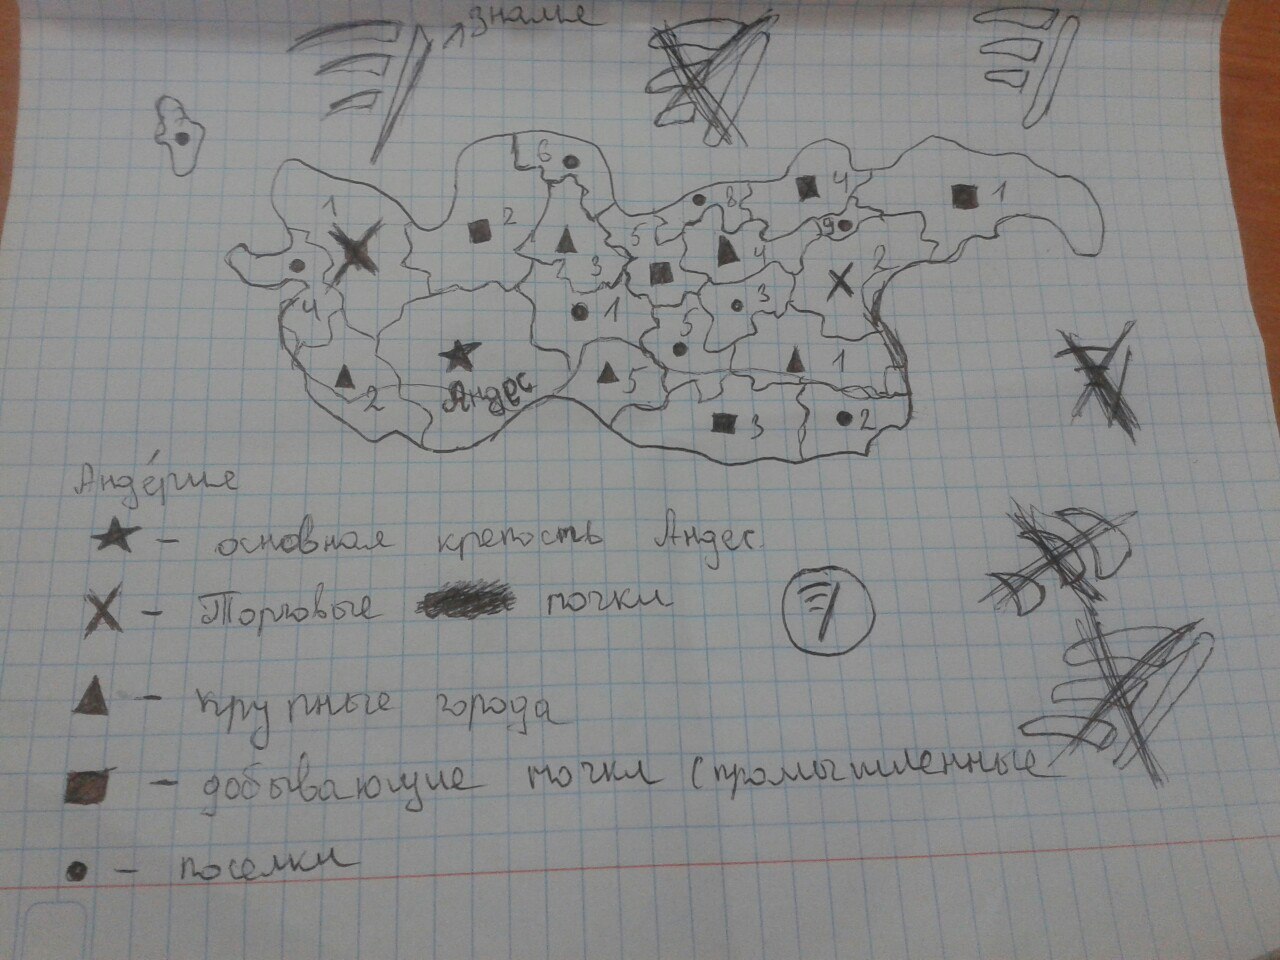 знамье
6
1
2
8
4
1
5
9
2
3
4
2
4
1
5
3
2
5
1
Андес
3
2
Андерие
- основная крепость Андес.
- Торговые точки
- крупные города
- добывающие точки (промышленные
- поселки